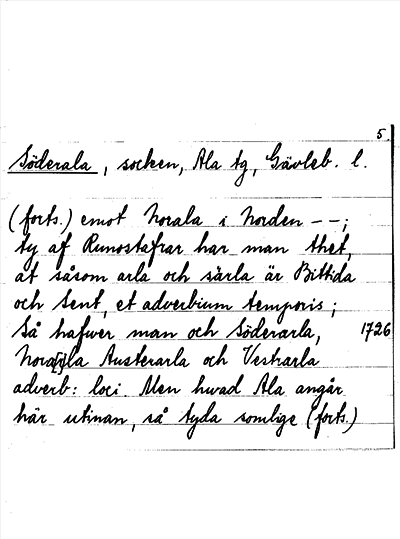 5.
Söderala, socken, Ala tg, Gävleb. l.
(forts.) emot Norala i Norden --;
ty af Runostafrar har man thet,
at såsom arla och särla är Bittida
och Sent, et adverbium temporis;
Så hafwer man och Söderarla, 1726
Nora[r]la Austerarla och Vestrarla
adverb: loci Men hwad Ala angår
här utinan, så tyda somlige (forts.)